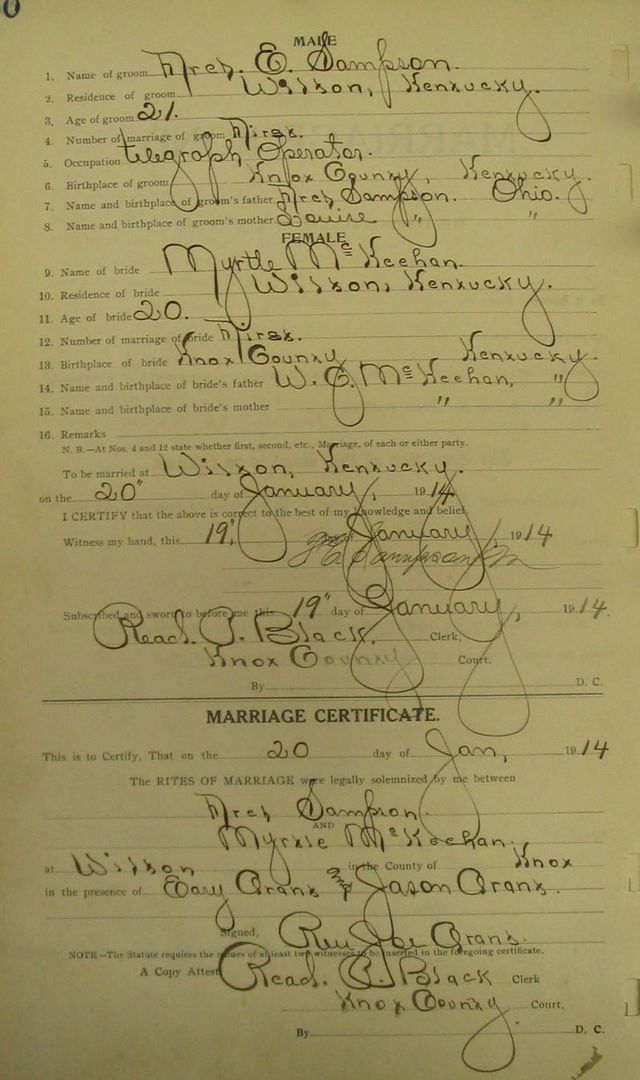 0
MALE
1. Name of groom Fred. E. Sampson.
2. Residence of groom Wilton, Kentucky.
3. Age of groom 21.
4. Number of marriage of groom First.
5. Occupation telegraph Operator.
6. Birthplace of groom Knox County, Kentucky.
7. Name and birthplace of groom's father Fred Sampson. Ohio.
8. Name and birthplace of groom's mother Louise " "
FEMALE
9. Name of bride Myrtle McKeehan.
10. Residence of bride Wilton, Kentucky.
11. Age of bride 20.
12. Number of marriage of bride First.
13. Birthplace of bride Knox County Kentucky.
14. Name and birthplace of bride's father W. C. McKeehan, "
15. Name and birthplace of bride's mother " "
16. Remarks
N. B.—At Nos. 4 and 12 state whether first, second, etc., Marriage, of each or either party.
To be married at Wilton, Kentucky.
on the 20" day of January, 1914.
I CERTIFY that the above is correct to the best of my knowledge and belief.
Witness my hand, this 19" January, 1914
Sampson
Subscribed and sworn to before me this 19" day of January, 1914.
Read. P. Black. Clerk,
Knox County Court.
By D. C.
MARRIAGE CERTIFICATE.
This is to Certify, That on the 20 day of Jan, 1914
The RITES OF MARRIAGE were legally solemnized by me between
Fred Sampson.
AND
Myrtle McKeehan.
at Wilton in the County of Knox
in the presence of Grant & Jason Grant.
Signed, Rev Joe Grant.
NOTE—The Statute requires the names of at least two witnesses to be inserted in the foregoing certificate.
A Copy Attest Read. P. Black Clerk
Knox County Court,
By D. C.